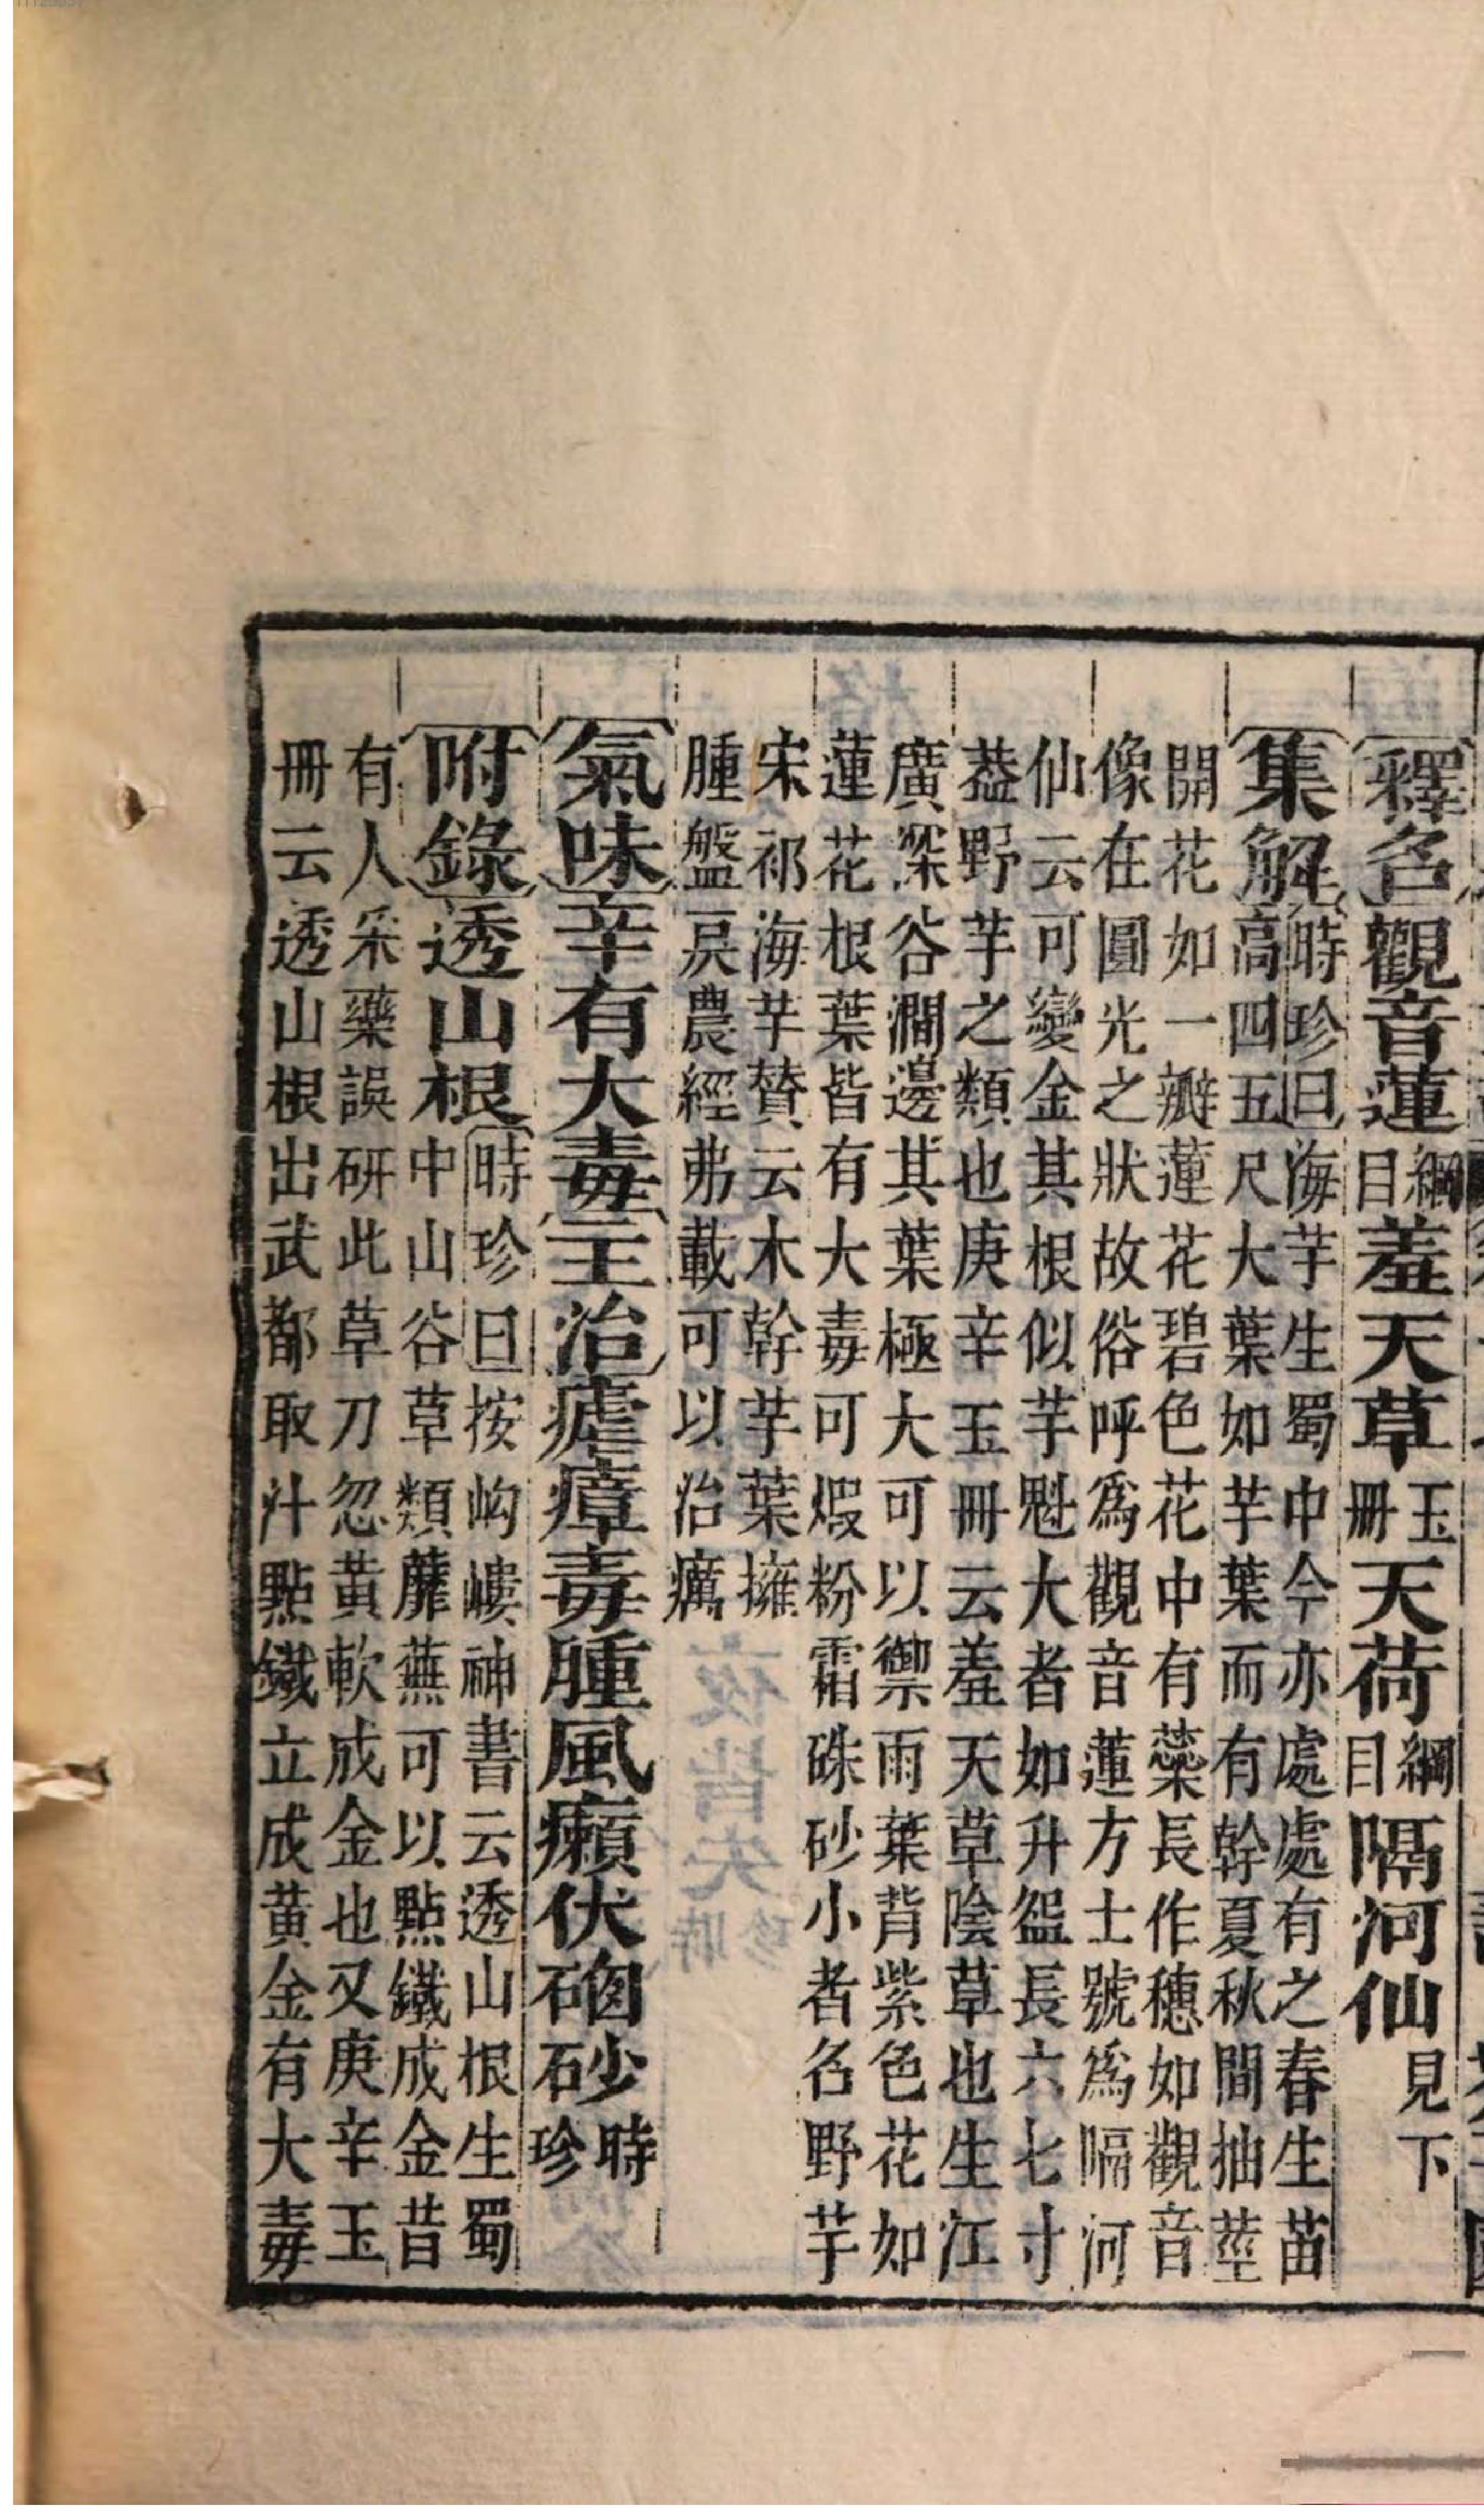 釋名觀音蓮綱目羞天草玉冊天荷綱目隔河仙見下
集解時珍曰海芋生蜀中今亦處處有之春生苗
高四五尺大葉如芋葉而有幹夏秋間抽莖
開花如一瓣蓮花碧色花中有蘂長作穗如觀音
像在圓光之狀故俗呼爲觀音蓮方士號爲隔河
仙云可變金其根似芋魁大者如升盌長六七寸
葢野芋之類也庚辛玉冊云羞天草陰草也生江
廣深谷澗邊其葉極大可以禦雨葉背紫色花如
蓮花根葉皆有大毒可煆粉霜硃砂小者名野芋
宋祁海芋贊云木幹芋葉擁
腫盤戾農經弗載可以治癘
氣味辛有大毒主治瘧瘴毒腫風癩伏硇砂時珍
附錄透山根時珍曰按岣嶁神書云透山根生蜀
中山谷草類蘼蕪可以點鐵成金昔
有人采藥誤研此草刀忽黃軟成金也又庚辛玉
冊云透山根出武都取汁點鐵立成黃金有大毒